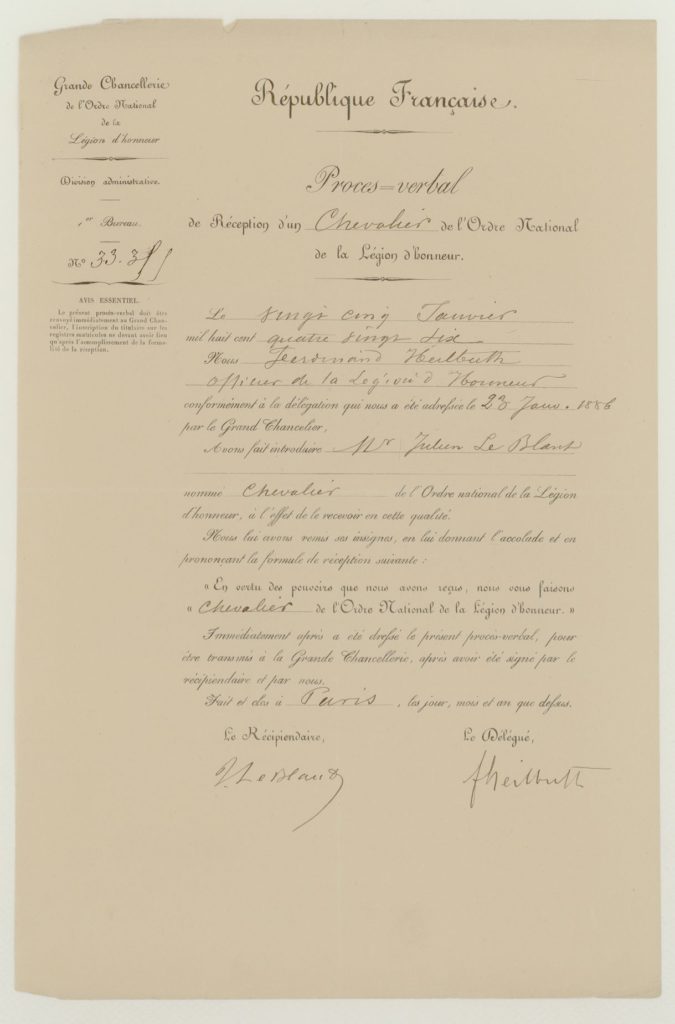 Grande Chancellerie
de l'Ordre National
de la
Légion d'honneur
Division administrative.
1er Bureau.
No 33.
AVIS ESSENTIEL.
Le présent procès-verbal doit être
renvoyé immédiatement au Grand Chan-
celier, l'inscription du titulaire sur les
registres matricules ne devant avoir lieu
qu'après l'accomplissement de la forma-
lité de la réception.
République Française.
Procès=verbal
de Réception d'un Chevalier de l'Ordre National
de la Légion d'honneur.
Le vingt cinq Janvier
mil huit cent quatre vingt six
Nous Ferdinand Heilbuth
officier de la Légion d Honneur
conformément à la délégation qui nous a été adressée le 23 Janv. 1886
par le Grand Chancelier,
Avons fait introduire Mr Julien Le Blant
nommé chevalier de l'Ordre national de la Légion
d'honneur, à l'effet de le recevoir en cette qualité.
Nous lui avons remis ses insignes, en lui donnant l'accolade et en
prononçant la formule de réception suivante :
« En vertu des pouvoirs que nous avons reçus, nous vous faisons
« Chevalier de l'Ordre National de la Légion d'honneur. »
Immédiatement après a été dressé le présent procès-verbal, pour
être transmis à la Grande Chancellerie, après avoir été signé par le
récipiendaire et par nous.
Fait et clos à Paris, les jour, mois et an que dessus.
Le Récipiendaire,
J. Le Blant
Le Délégué,
fheilbuth